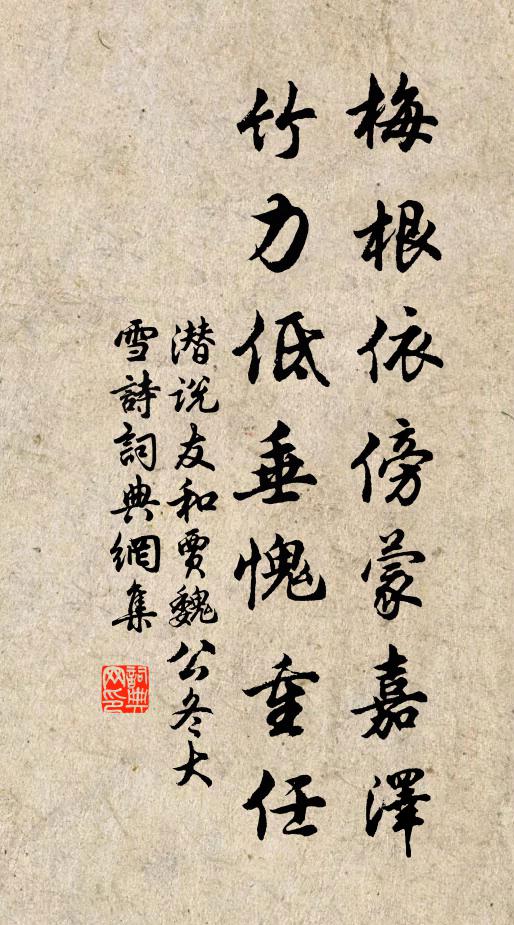 梅根依傍蒙嘉澤
竹力低垂愧重任
潜说友和贾魏公冬大
雪詩詞典網集
詞典
网印